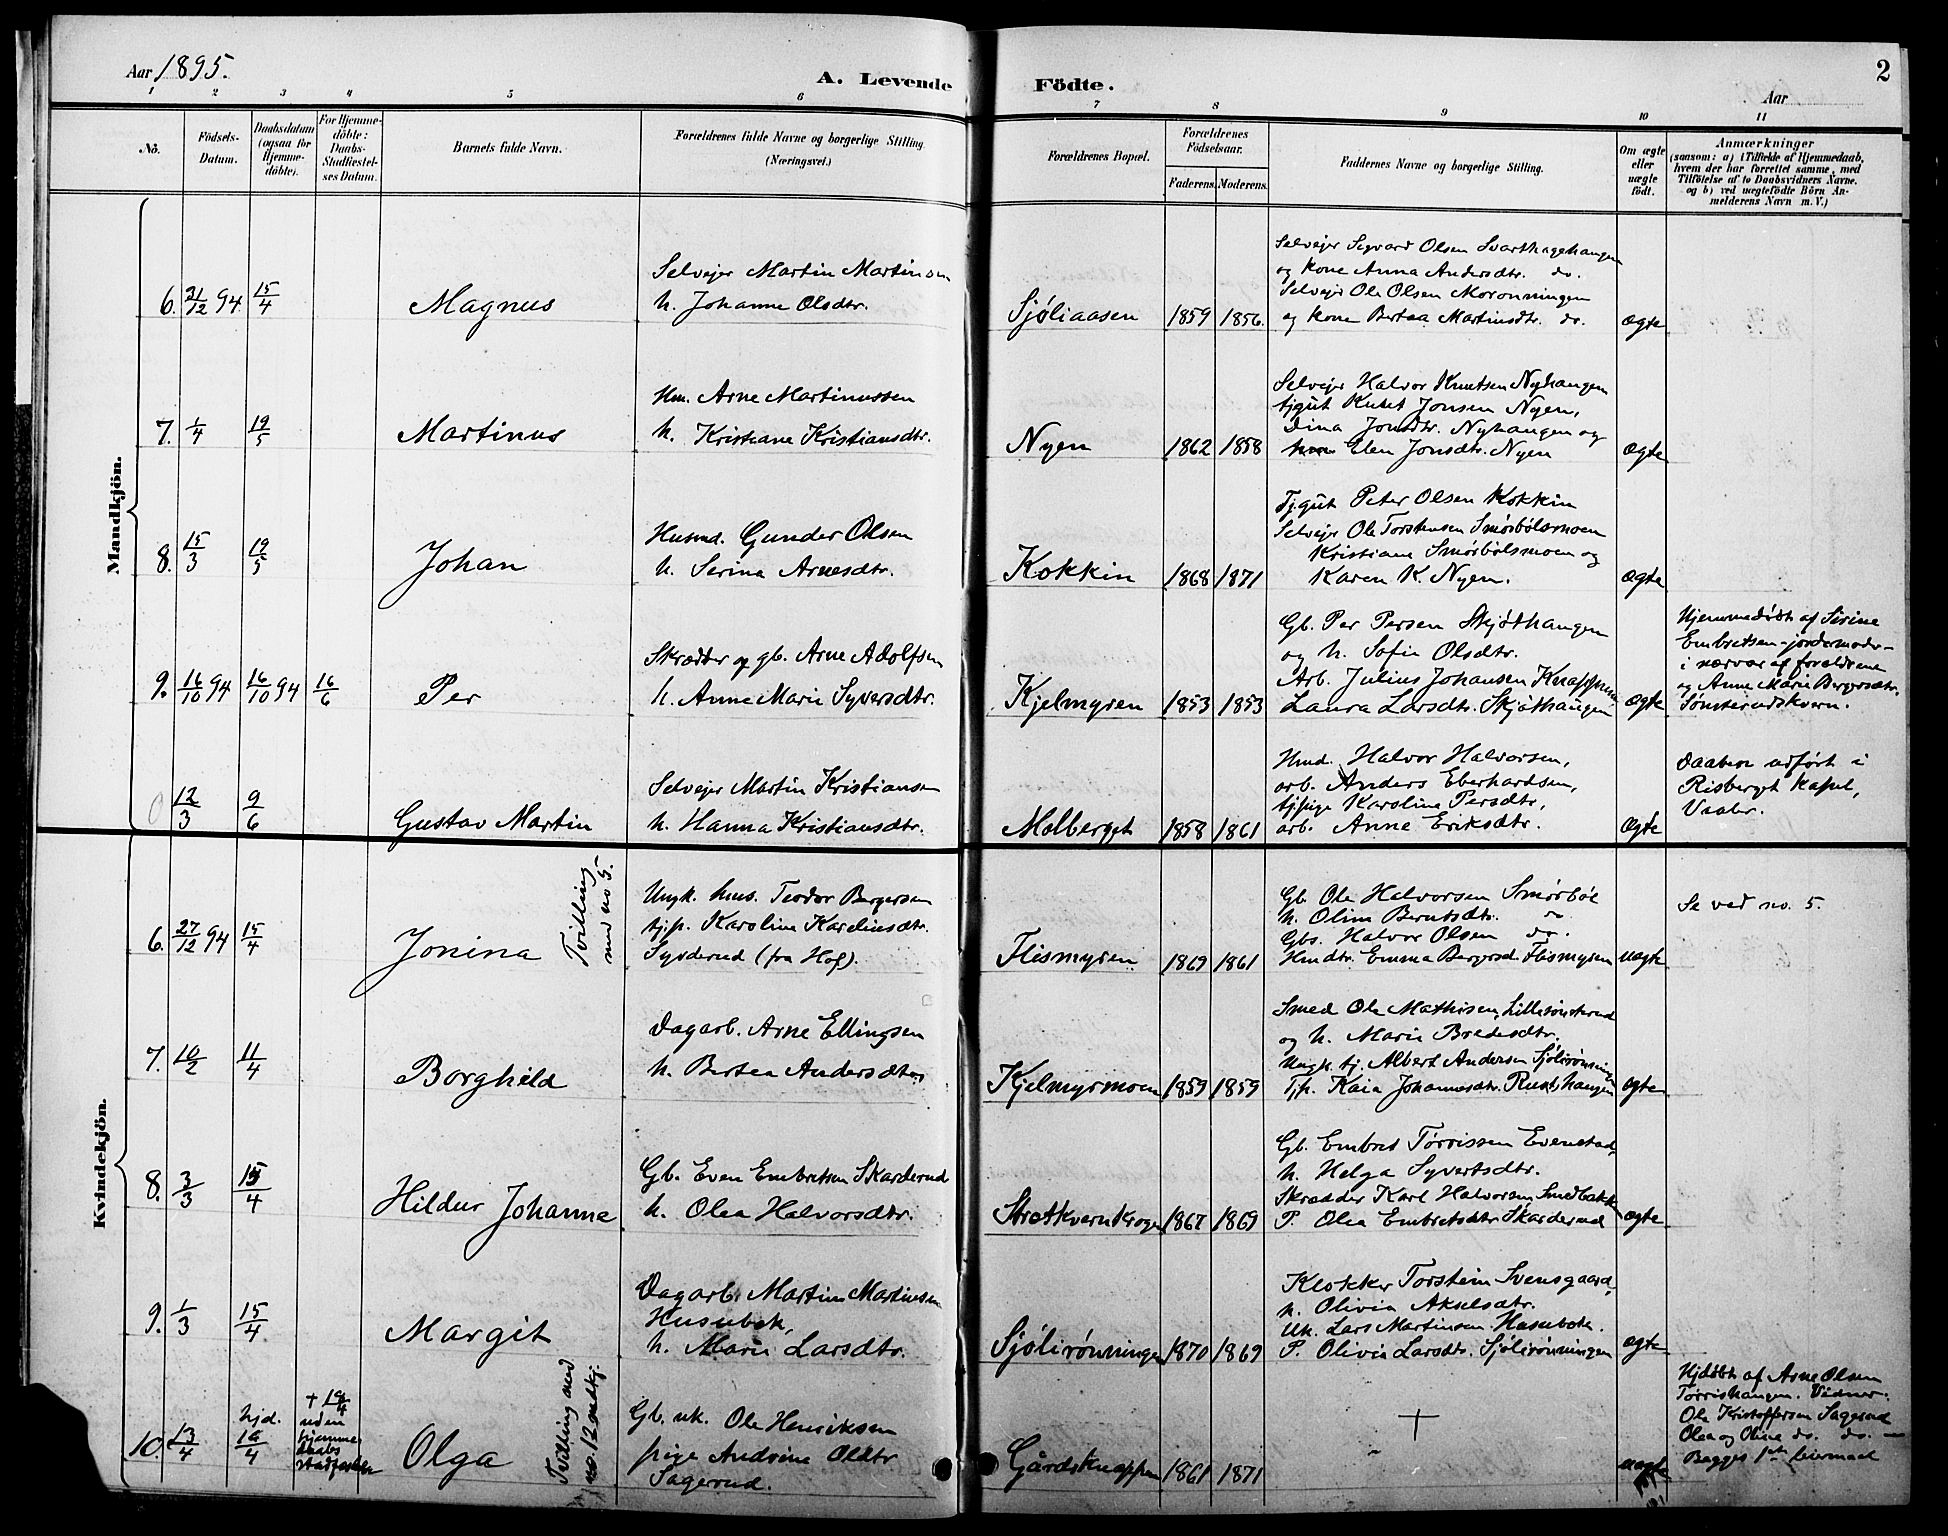 Aar 1895.
A. Levende Födte.
Aar
2
1 2 3 4 5 6 7 8 9 10 11
No.
Födsels-
Datum.
Daabsdatum
(ogsaa for
Hjemme-
döbte).
For Hjemme-
döbte:
Daabs-
Stadfæstel-
ses Datum.
Barnets fulde Navn.
Forældrenes fulde Navne og borgerlige Stilling.
(Næringsvei.)
Forældrenes Bopæl.
Forældrenes
Födselsaar.
Faderens. Moderens.
Faddernes Navne og borgerlige Stilling.
Om ægte
eller
uægte
födt.
Anmærkninger
(saasom: a) i Tilfælde af Hjemmedaab,
hvem der har forrettet samme, med
Tilföielse af to Daabsvidners Navne,
og b) ved uægtefödte Börn An-
melderens Navn m. V.)
Mandkjön.
6. 31/12 94. 15/4
Magnus
Selvejer Martin Martinsen
h. Johanne Olsdtr.
Sjøliaasen 1859 1856.
Selvejer Sigvard Olsen Svarthagehaugen
og kone Anna Andersdtr. do.
Selvejer Ole Olsen Moronningen
og kone Bertea Martinsdtr. do.
ægte
7. 1/4 19/5
Martinus
Hm. Arne Martinussen
h. Kristiane Kristiansdtr.
Nyen 1862 1858
Selvejer Halvor Knutsen Nyhaugen
tjgut Knut Jonsen Nyen,
Dina Jonsdtr. Nyhaugen og
Elen Jonsdtr. Nyen
ægte
8. 15/3 19/5
Johan
Husmd. Gunder Olsen
h. Serina Arnesdtr.
Kokkin 1868 1871
Tjgut Peter Olsen Kokkin
Selvejer Ole Torstensen Smørbølsmoen
Kristiane Smørbølsmoen og
Karen K. Nyen.
ægte
9. 16/10 94 16/10 94 16/6
Per
Skrædder og gb. Arne Adolfsen
h. Anne Marie Syversdtr.
Kjelmyren 1853 1853
Gb. Per Persen Skjøthaugen
og h. Sofie Olsdtr.
Arb. Julius Johansen Knappen
Laura Larsdtr. Skjøthaugen
ægte
Hjemmedøbt af Sirine
Embretsen - jordemoder -
i nærvær af forældrene
og Anne Marie Bergersdtr.
Sønsterudskvern.
0 12/3 9/6
Gustav Martin
Selvejer Martin Kristiansen
h. Hanna Kristiansdtr.
Malberget 1858 1861
Hmd. Halvor Halvorsen,
arb. Anders Eberhardsen,
tjpige Karoline Persdtr,
arb. Anne Eriksdtr.
Ægte
Daaben udført i
Risberget kapel,
Vaaler.
Kvindekjön.
6. 27/12 94 15/4
Jonina
Tvilling
med no 5.
Ungk. hus. Teodor Bergersen
tj.p. Karoline Kareliusdtr.
Syverud (fra Hof).
Flismyren 1869 1861
Gb. Ole Halvorsen Smørbøl
h. Oline Berntsdtr. do
Gbs. Halvor Olsen do.
Hmdtr. Emma Bergersd. Flismyren
uægte
Se ved no. 5.
7. 10/2 11/4
Borghild
Dagarb. Arne Ellingsen
h. Bertea Andersdtr.
Kjelmyrmoen 1859 1859
Smed Ole Mathisen Lillesønsterud
og h. Marie Bredesdtr.
Ungk. tj. Albert Andersen Sjølirønningen
Tjp. Kaia Johannesdtr. Rusthaugen
ægte
8. 3/3 15/4
Hildur Johanna
Gb. Even Embretsen Skarderud
h. Olea Halvorsdtr.
Stræetkvern Kroge 1867 1869
Gb. Embret Tørrissen Evenstad,
h. Helga Syvertsdtr.
Skrædder Karl Halvorsen Smedbakken
P. Olea Embretsdtr. Skarderud
ægte
9. 1/3 15/4
Margit
Dagarb. Martin Martinsen
Husubek,
h. Marie Larsdtr.
Sjølirønningen 1870 1869
Klokker Torstein Svensgaard,
h. Olivia Akselsdtr.
Uk. Lars Martinsen Husubek.
P. Olivia Larsdtr. Sjølirønningen
ægte
10. 13/4 hjd. 18/4
+ 19/4
uden
hjemme
daabs
stadfæstelse
Olga
Tvilling med
no. 12 mdkj.
Gb. uk. Ole Henriksen
pige Andrine Olsdtr
Sagerud.
Gårdsknappen 1861 1871
+
uægte
Hjdøbt af Arne Olsen
Tørrishaugen. Vidner:
Ole Kristoffersen Sagerud
Olea og Oline do. do. -
Begges 1ste leiermaal